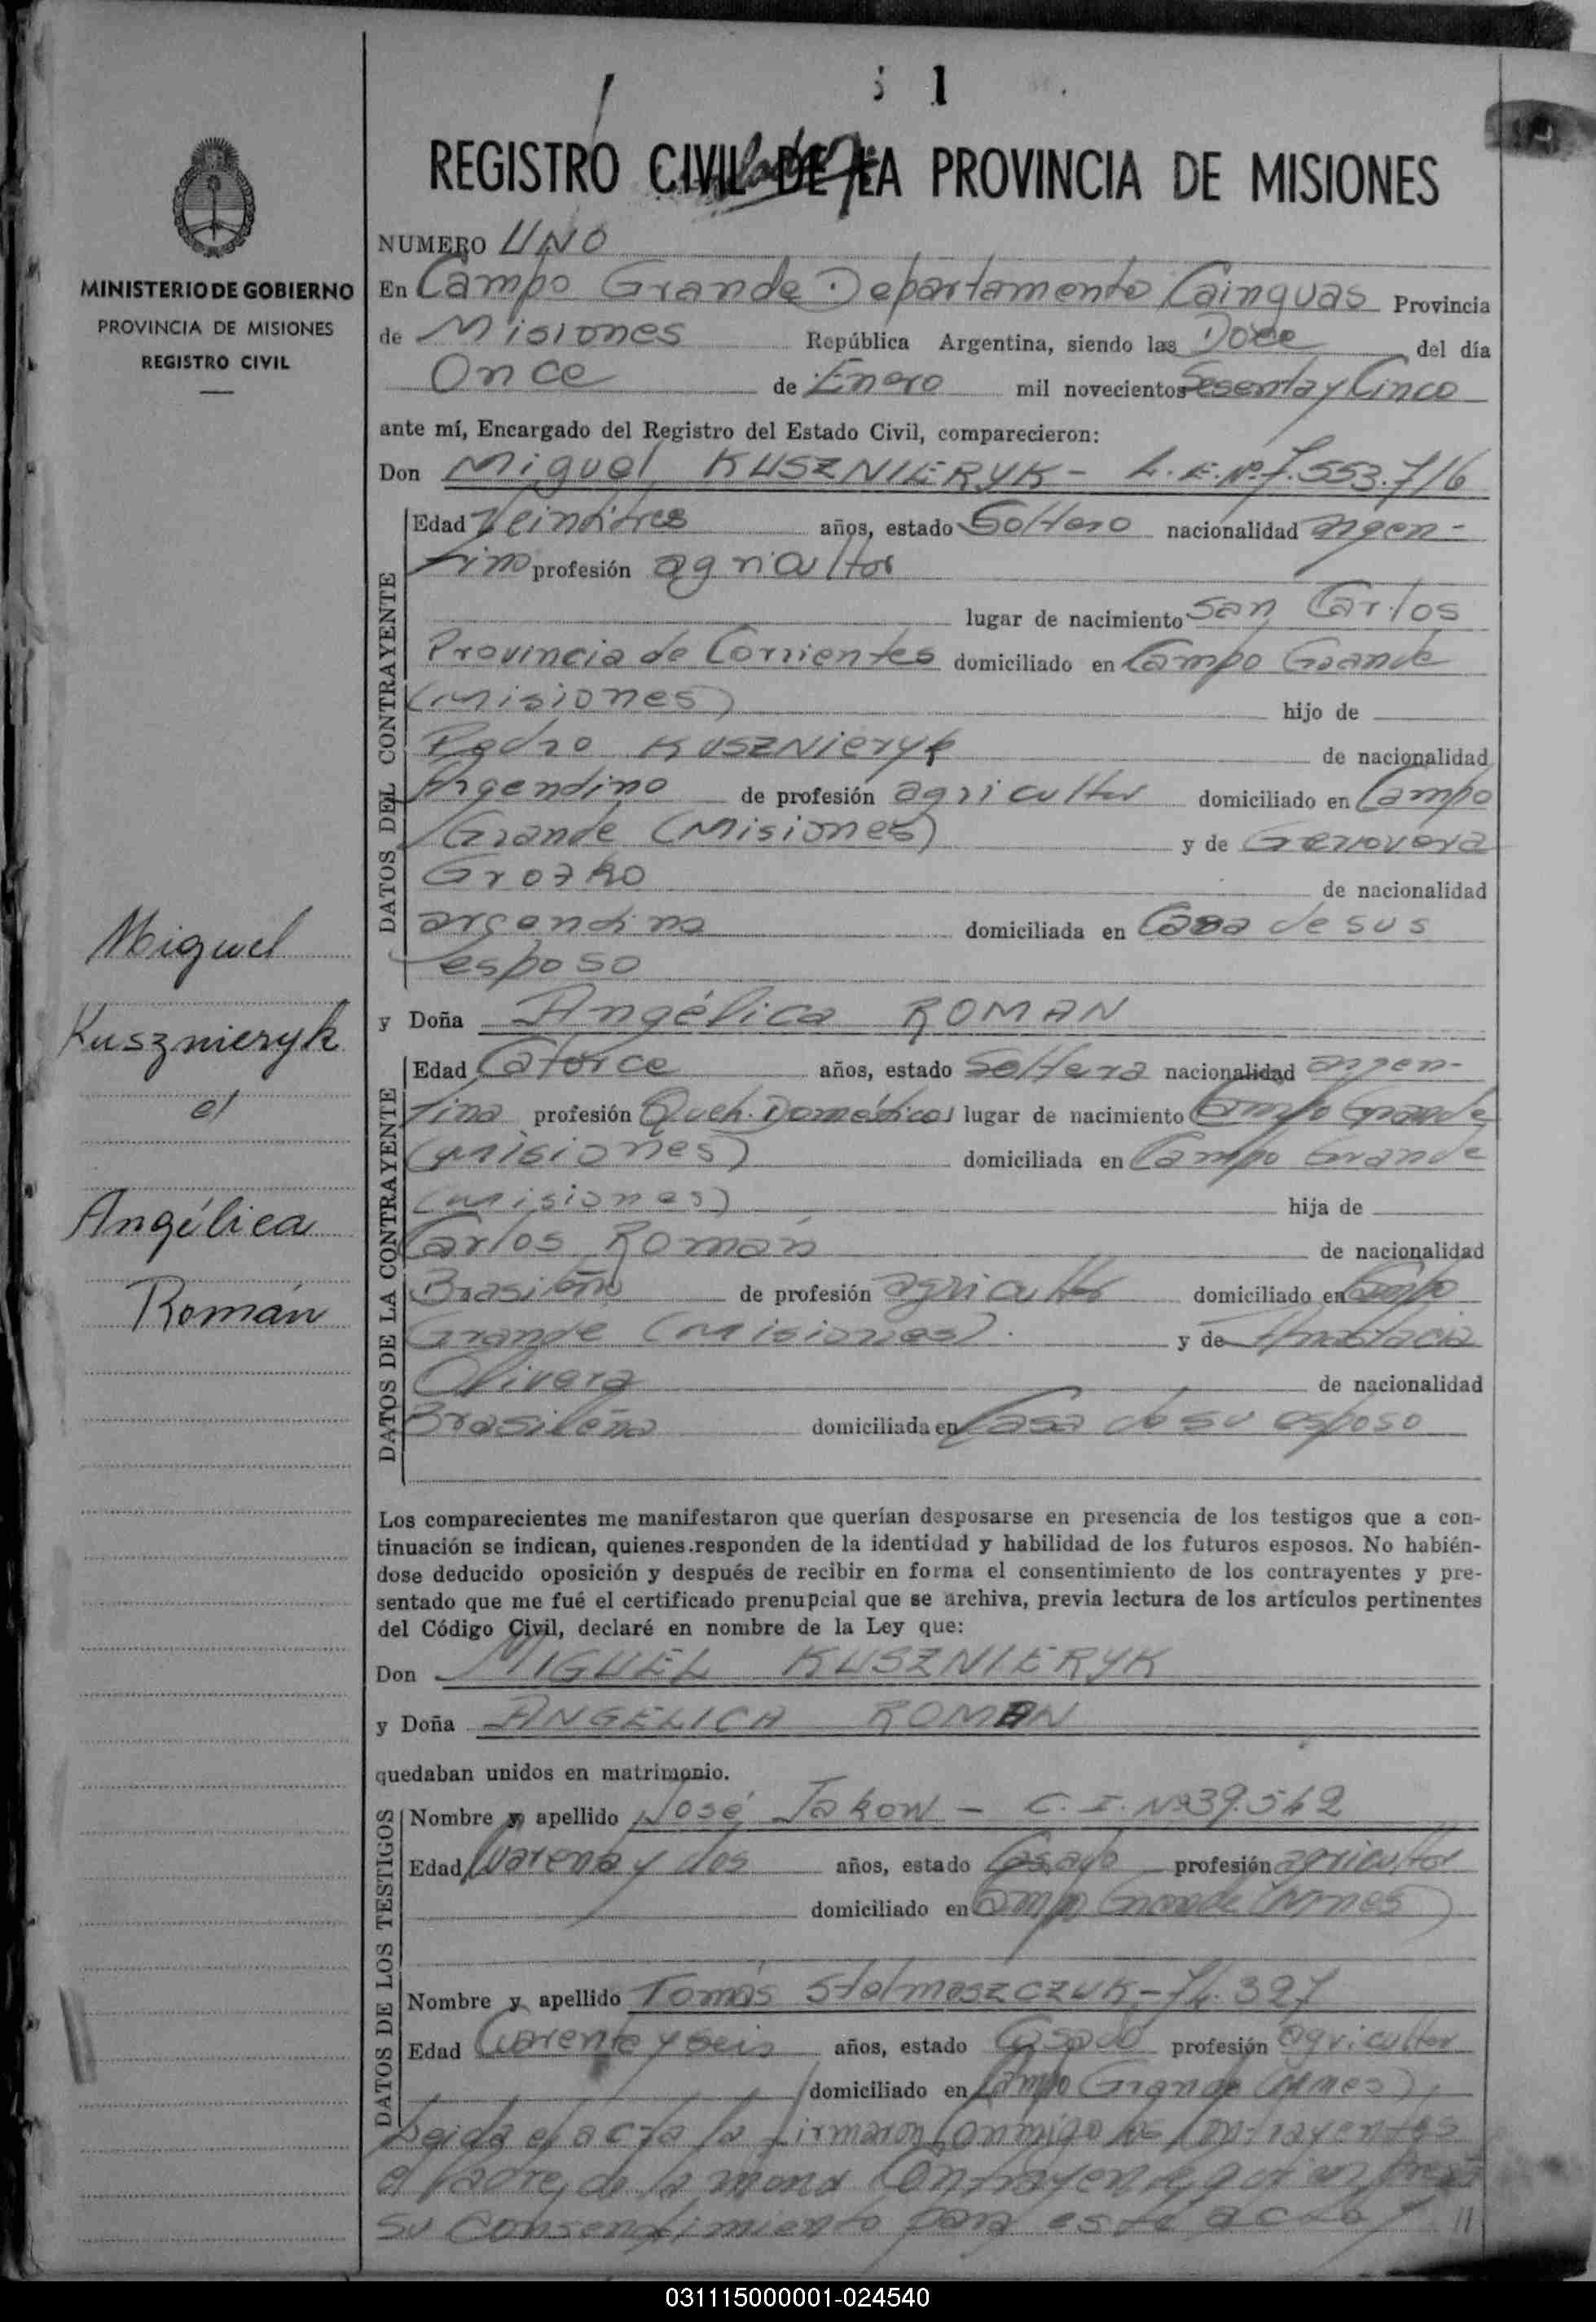 1
REGISTRO CIVIL DE LA PROVINCIA DE MISIONES
MINISTERIO DE GOBIERNO
PROVINCIA DE MISIONES
REGISTRO CIVIL
NUMERO UNO
En Campo Grande Departamento Cainguas Provincia
de Misiones República Argentina, siendo las Doce del día
Once de Enero mil novecientos Sesenta y Cinco
ante mí, Encargado del Registro del Estado Civil, comparecieron:
Don Miguel KUSZNIERYK - L.E.Nº.7.553.716
DATOS DEL CONTRAYENTE
Edad Veintitres años, estado Soltero nacionalidad argen-
tino profesión agricultor
lugar de nacimiento San Carlos
Provincia de Corrientes domiciliado en Campo Grande
(Misiones) hijo de
Pedro KUSZNIERYK de nacionalidad
Argentino de profesión agricultor domiciliado en Campo
Grande (Misiones) y de Genoveva
de nacionalidad
argentina domiciliada en Casa de sus
esposo
Miguel
Kusznieryk
y Doña Angélica ROMAN
DATOS DE LA CONTRAYENTE
Edad Catorce años, estado Soltera nacionalidad argen-
tina profesión Queh. Domésticos lugar de nacimiento Campo Grande
(Misiones) domiciliada en Campo Grande
(Misiones) hija de
Carlos Román de nacionalidad
Brasileño de profesión agricultor domiciliado en Campo
Grande (Misiones). y de Anastacia
Olivera de nacionalidad
Brasileña domiciliada en Casa de su esposo
Angélica
Román
Los comparecientes me manifestaron que querían desposarse en presencia de los testigos que a con-
tinuación se indican, quienes responden de la identidad y habilidad de los futuros esposos. No habién-
dose deducido oposición y después de recibir en forma el consentimiento de los contrayentes y pre-
sentado que me fué el certificado prenupcial que se archiva, previa lectura de los artículos pertinentes
del Código Civil, declaré en nombre de la Ley que:
Don MIGUEL KUSZNIERYK
y Doña ANGELICA ROMAN
quedaban unidos en matrimonio.
DATOS DE LOS TESTIGOS
Nombre y apellido José Jakow - C.I.Nº39.542
Edad Cuarenta y dos años, estado Casado profesión agricultor
domiciliado en Campo Grande (Mnes)
Nombre y apellido Tomás Stalmaszczuk - 74.327
Edad Cuarenta y seis años, estado Casado profesión agricultor
domiciliado en Campo Grande (Mnes)
Leida el acta la firmaron conmigo los Contrayentes
el padre de la Contrayente quien
su consentimiento para este acto y //
031115000001-024540